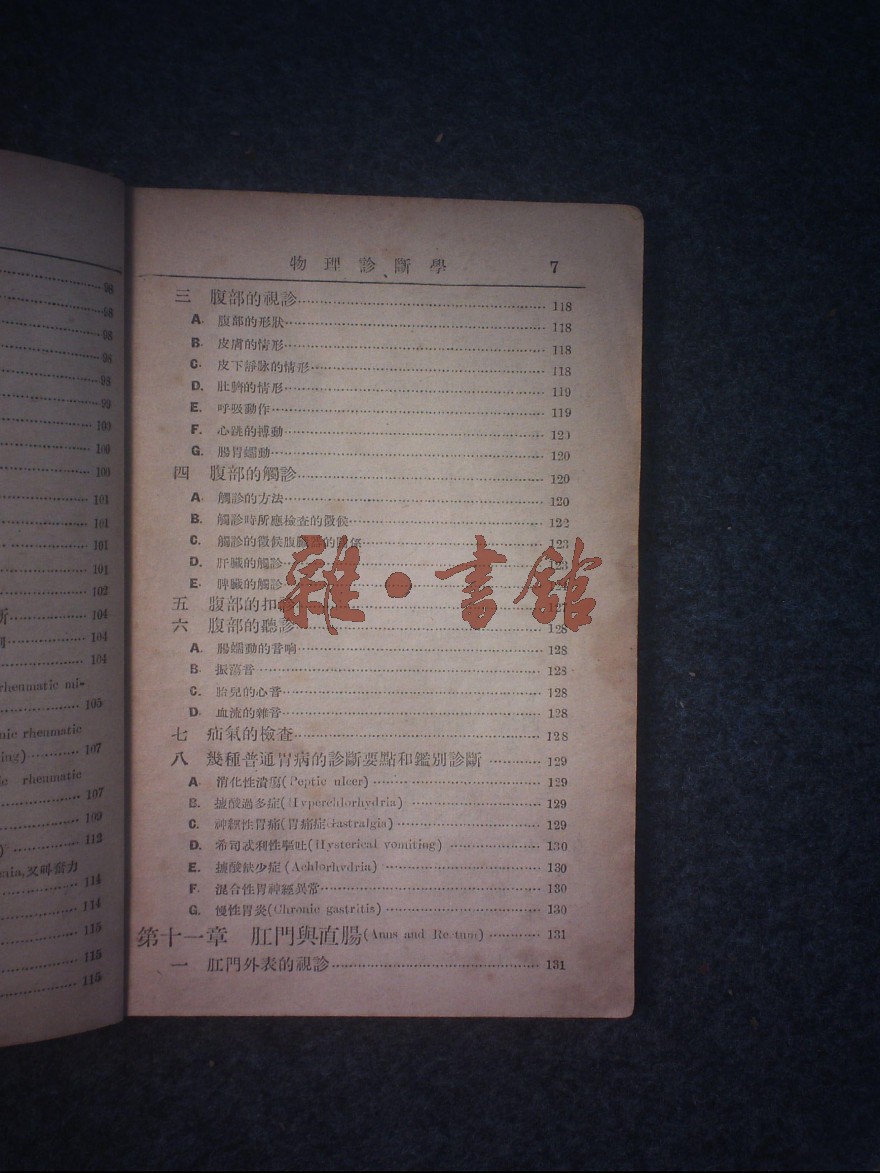 98
98
98
98
98
99
100
100
100
101
101
101
101
102
104
104
104
rheumatic mi-
105
nic rheumatic
107
rheumatic
107
109
112
又叫奮力
114
114
115
115
115
物理診斷學 7
三 腹部的視診 118
A. 腹部的形狀 118
B. 皮膚的情形 118
C. 皮下靜脉的情形 118
D. 肚臍的情形 119
E. 呼吸動作 119
F. 心跳的搏動 120
G. 腸胃蠕動 120
四 腹部的觸診 120
A. 觸診的方法 120
B. 觸診時所應檢查的徵候 122
C. 觸診的徵候腹臟器的關係 123
D. 肝臟的觸診 123
E. 脾臟的觸診
五 腹部的扣 127
六 腹部的聽診 128
A. 腸蠕動的音响 128
B. 振盪音 128
C. 胎兒的心音 128
D. 血流的雜音 128
七 疝氣的檢查 128
八 幾種普通胃病的診斷要點和鑑別診斷 129
A. 消化性潰瘍(Peptic ulcer) 129
B. 鹽酸過多症(Hyperchlorhydria) 129
C. 神經性胃痛(胃痛症Gastralgia) 129
D. 希司忒利性嘔吐(Hysterical vomiting) 130
E. 鹽酸缺少症(Achlorhydria) 130
F. 混合性胃神經異常 130
G. 慢性胃炎(Chronic gastritis) 130
第十一章 肛門與直腸(Anus and Rectum) 131
一 肛門外表的視診 131
雜·書館